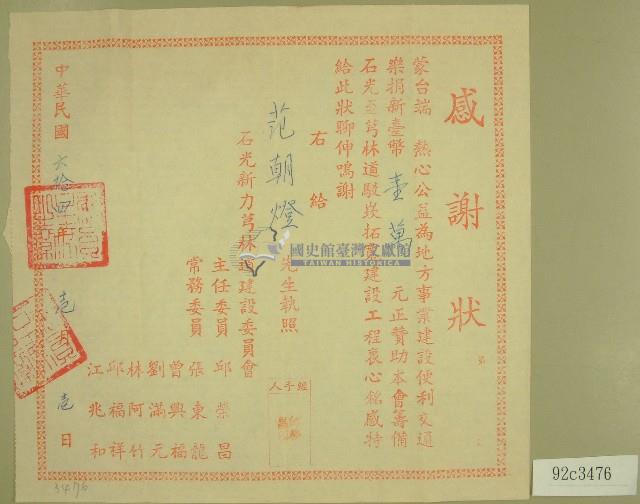 感謝狀
蒙台端 熱心公益為地方事業建設便利交通
樂捐新臺幣壹萬 元正贊助本會籌備
石光至芎林道駁崁拓寬建設工程衷心銘感特
給此狀聊伸鳴謝
右給
范朝燈先生執照
石光新力芎林道建設委員會
主任委員 邱榮昌
常務委員 張東龍
曾興福
劉滿元
林阿竹
邱福祥
江兆和
經手人
中華民國六拾四年壱月壱日
國史館臺灣文獻館
TAIWAN HISTORICA
3476
92c3476